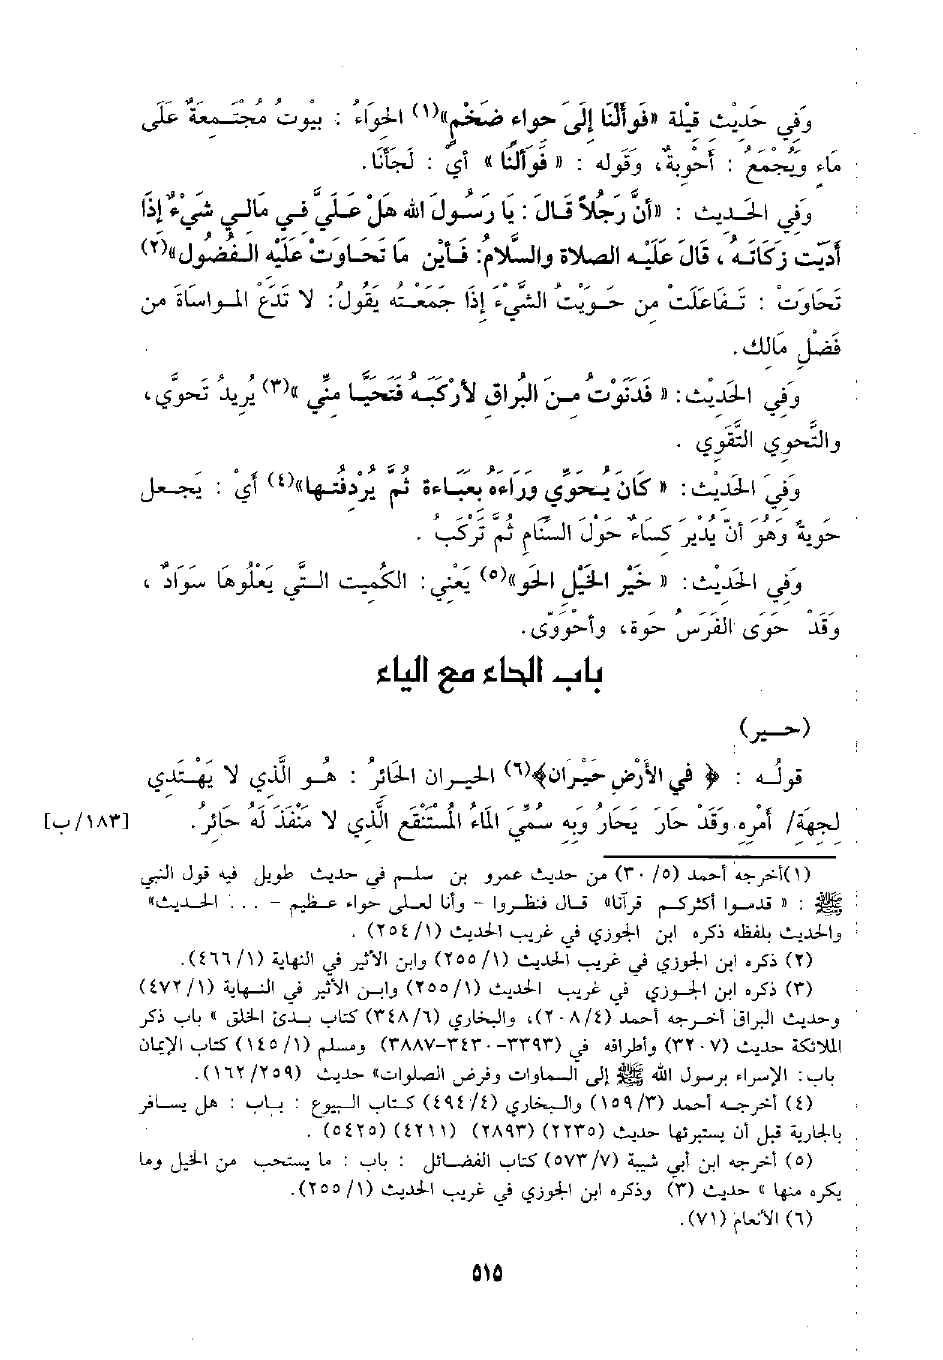 وَفِي حَدَيْثِ قَيْلة «فَوَأَلْنَا إِلَىَ حَواء ضَخْمٍ»(١) الحَوِاءُ : بيْوتُ مُجْتَمِعَةٌ عَلَى
مَاءِ ويَُجْمَعُ : أَحْوِبةٌ، وَقَوله : « فَوَأَلْنَا » أيْ : لَجَأنَا.
وَفِي الحَديث : «أنَّ رَجُلاً قَالَ : يا رَسُولَ الله هَلْ عَلَيَّ فِي مَالي شَيْءٌ إِذَا
أدَيّت زكَاتَهُ ، قَالَ عَلَيْه الصلاة والسَّلامُ: فَأيْنَ مَا تَحَاوَتْ عَلَيْهِ الفُضُول»(٢)
تَحَاوَتَْ : تَفَاعَلَتْ من حَوَيْتُ الشَّيْءَ إِذَا جَمَعْتُه يَقُولُ: لا تَدَعْ المواسَاةَ من
فَضْلِ مَالِك.
وَفِي الحَدَيْث: « فَدَنَوْتُ مِنَ البُراقِ لأرْكَبَهُ فَتَحَيَّا مِنِّي »(٣) يُرِيدُ تَحَوَّي،
والتَّحوي التَّقَوي .
وَفِي الحَدَيْثِ: « كَانَ يُحَوِّي وَرَاءهُ بِعَبَاءة ثُمَّ يُرْدِفُها»(٤) أيْ : يَجعل
حَوِيةً وَهُوَ أنّ يُدْيَر كِسَاءً حَوْلَ السَّنَامِ ثُمَّ تَرْكَبُ .
وَفِي الحَديْث: « خَيْر الخيْل الحَو»(٥) يَعْنِي: الكُميت التَّي يَعْلُوهَا سَوَادٌ ،
وَقَدْ حَوَى الفَرَسُ حَوة، وأحْوَوّى.
باب الحاء مع الياء
(حير)
قولُه : ﴿ في الأَرْضِ حَيْرَان﴾(٦) الحيران الحَائرُ : هُو الَّذِي لا يَهْتَدِي
لجهةِ/ أمْرِهِ وَقَدْ حارَ يَحَارُ وبِه سُمِّيَ الماءُ المُسْتَنْقَع الَّذِي لا مَنْفَذَ لَه حائرُ. [١٨٣/ب]
(١)أخرجه أحمد (٣٠/٥) من حديث عمرو بن سلم في حديث طويل فيه قول النبي
ﷺ : « قدموا أكثركم قرآنا» قال فنظروا - وأنا لعلى حواء عظيم - ... الحديث»
والحديث بلفظه ذكره ابن الجوزي في غريب الحديث (٢٥٤/١) .
(٢) ذكره ابن الجوزي في غريب الحديث (٢٥٥/١) وابن الأثير في النهاية (٤٦٦/١).
(٣) ذكره ابن الجوزي في غريب الحديث (٢٥٥/١) وابن الأثير في النهاية (٤٧٢/١)
وحديث البراق أخرجه أحمد (٢٠٨/٤)، والبخاري (٣٤٨/٦) كتاب بدئ الخلق » باب ذكر
الملائكة حديث (٣٢٠٧) وأطرافه في (٣٣٩٣-٣٤٣٠-٣٨٨٧) ومسلم (١٤٥/١) كتاب الإيمان
باب: الإسراء برسول الله ﷺ إلى السماوات وفرض الصلوات» حديث (١٦٢/٢٥٩).
(٤) أخرجه أحمد (١٥٩/٣) والبخاري (٤٩٤/٤) كتاب البيوع : باب : هل يسافر
بالجارية قبل أن يستبرئها حديث (٢٢٣٥) (٢٨٩٣) (٤٢١١) (٥٤٢٥) .
(٥) أخرجه ابن أبي شيبة (٥٧٣/٧) كتاب الفضائل : باب : ما يستحب من الخيل وما
يكره منها » حديث (٣) وذكره ابن الجوزي في غريب الحديث (٢٥٥/١).
(٦) الأنعام (٧١).
٥١٥